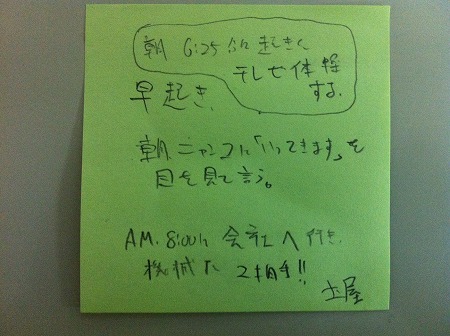 朝 6:25分に起きて
テレビ体操
する。
早起き、
朝 ニャンコに「いってきます」を
目を見て言う。
AM. 8:00に 会社へ行き、
機械
土屋